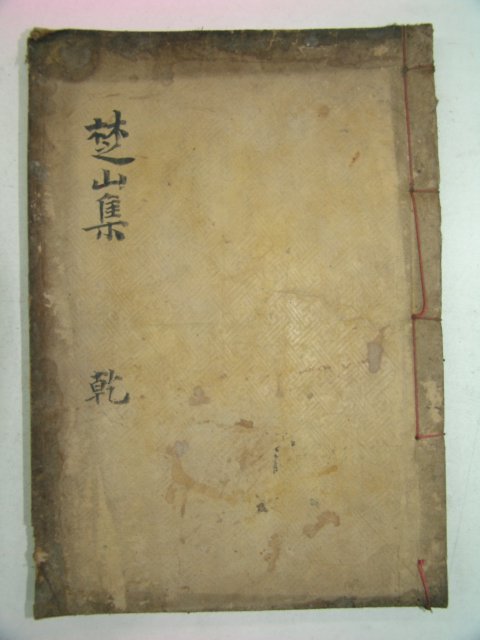 楚山集
乾